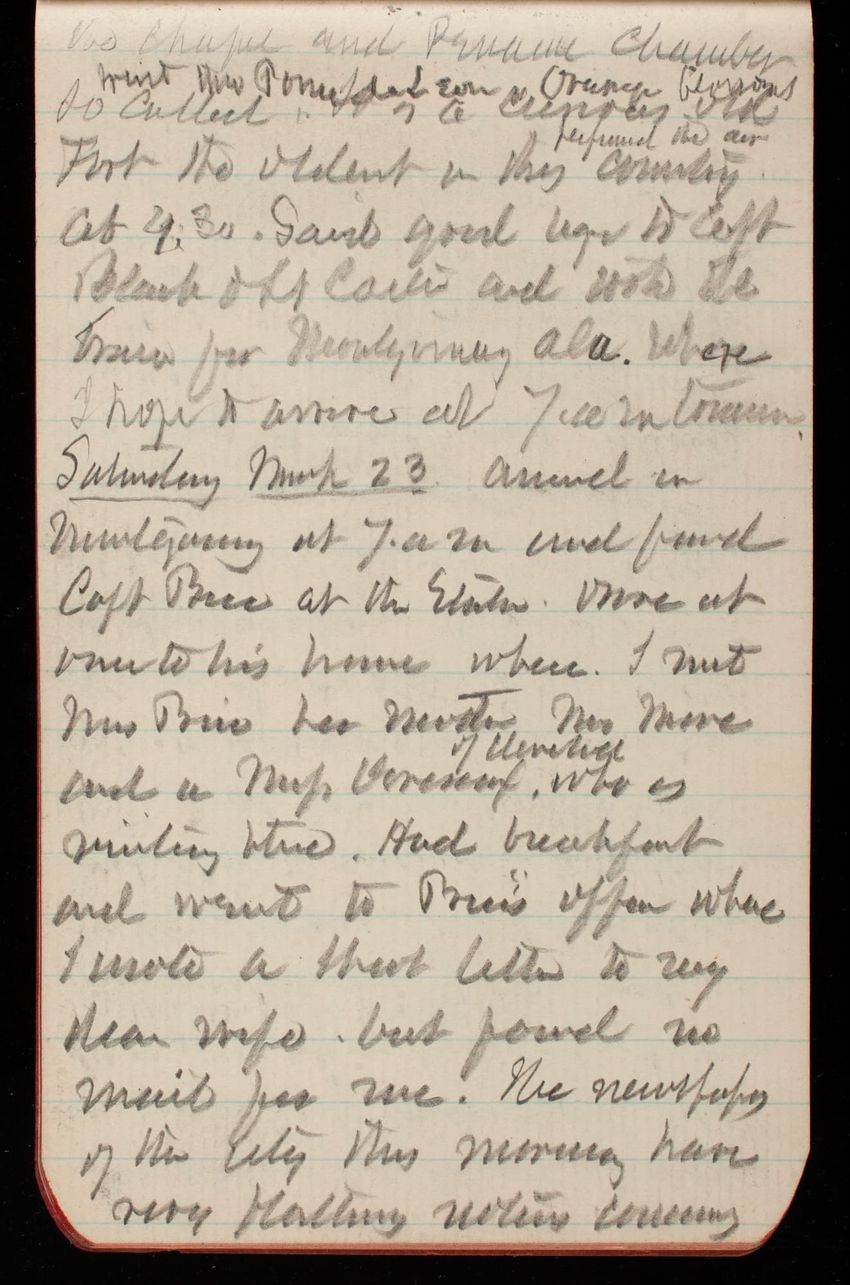 the Chapel and Chamber
went thro Ponce de Leon. Orange blossoms
so called. It is a curious old
perfumed the air
Fort the oldest in this country.
At 4.30. Said good bye to Capt
Black & Lt and took the
train for Montgomery Ala. Where
I hope to arrive at 7. a m
Saturday March 23 arrived in
Montgomery at 7. a m and found
Capt Price at the Station. Drove at
once to his home where. I met
Mrs Price her Mrs
and a Miss who is
of Cleveland
visiting there. Had breakfast
and went to Price's office where
I wrote a short letter to my
dear wife. but found no
mail for me. The newspapers
of the City this morning have
very flattering notices concerning